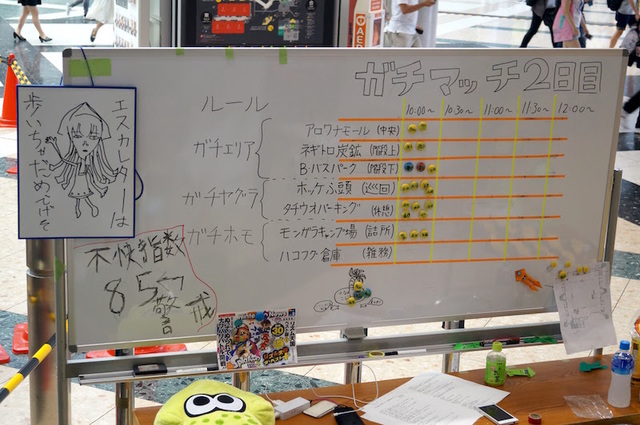 ガチマッチ2日目
ルール
10:00〜 10:30〜 11:00〜 11:30〜 12:00〜
ガチエリア
アロワナモール (中央)
ネギトロ炭鉱 (階段上)
B・バスパーク (階段下)
ガチヤグラ
ホッケふ頭 (巡回)
タチウオパーキング (休憩)
ガチホモ
モンガラキャンプ場 (詰所)
ハコフグ倉庫 (雑務)
エスカレターは
歩いちゃだめでげそ
不快指数
85
警戒
AED